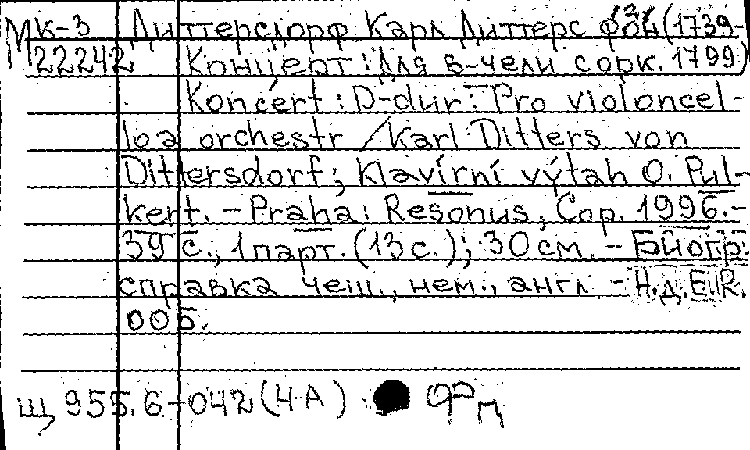 МК-3 Диттерсдорф Карл Диттерс фон (1739-
М22242 Концерт: Для в-чели с орк. 1799)
Koncert: D-dur: Pro violoncel-
lo a orchestr / Karl Ditters von
Dittersdorf; Klavírní výtah O. Pul-
kert. – Praha: Resonus, Cop. 1996.-
39 с., 1 парт. (13 с.); 30 см. – Биогр.
справка чеш., нем., англ – Н.д. E.R.
005.
Щ 955.6-042 (4А) Фп